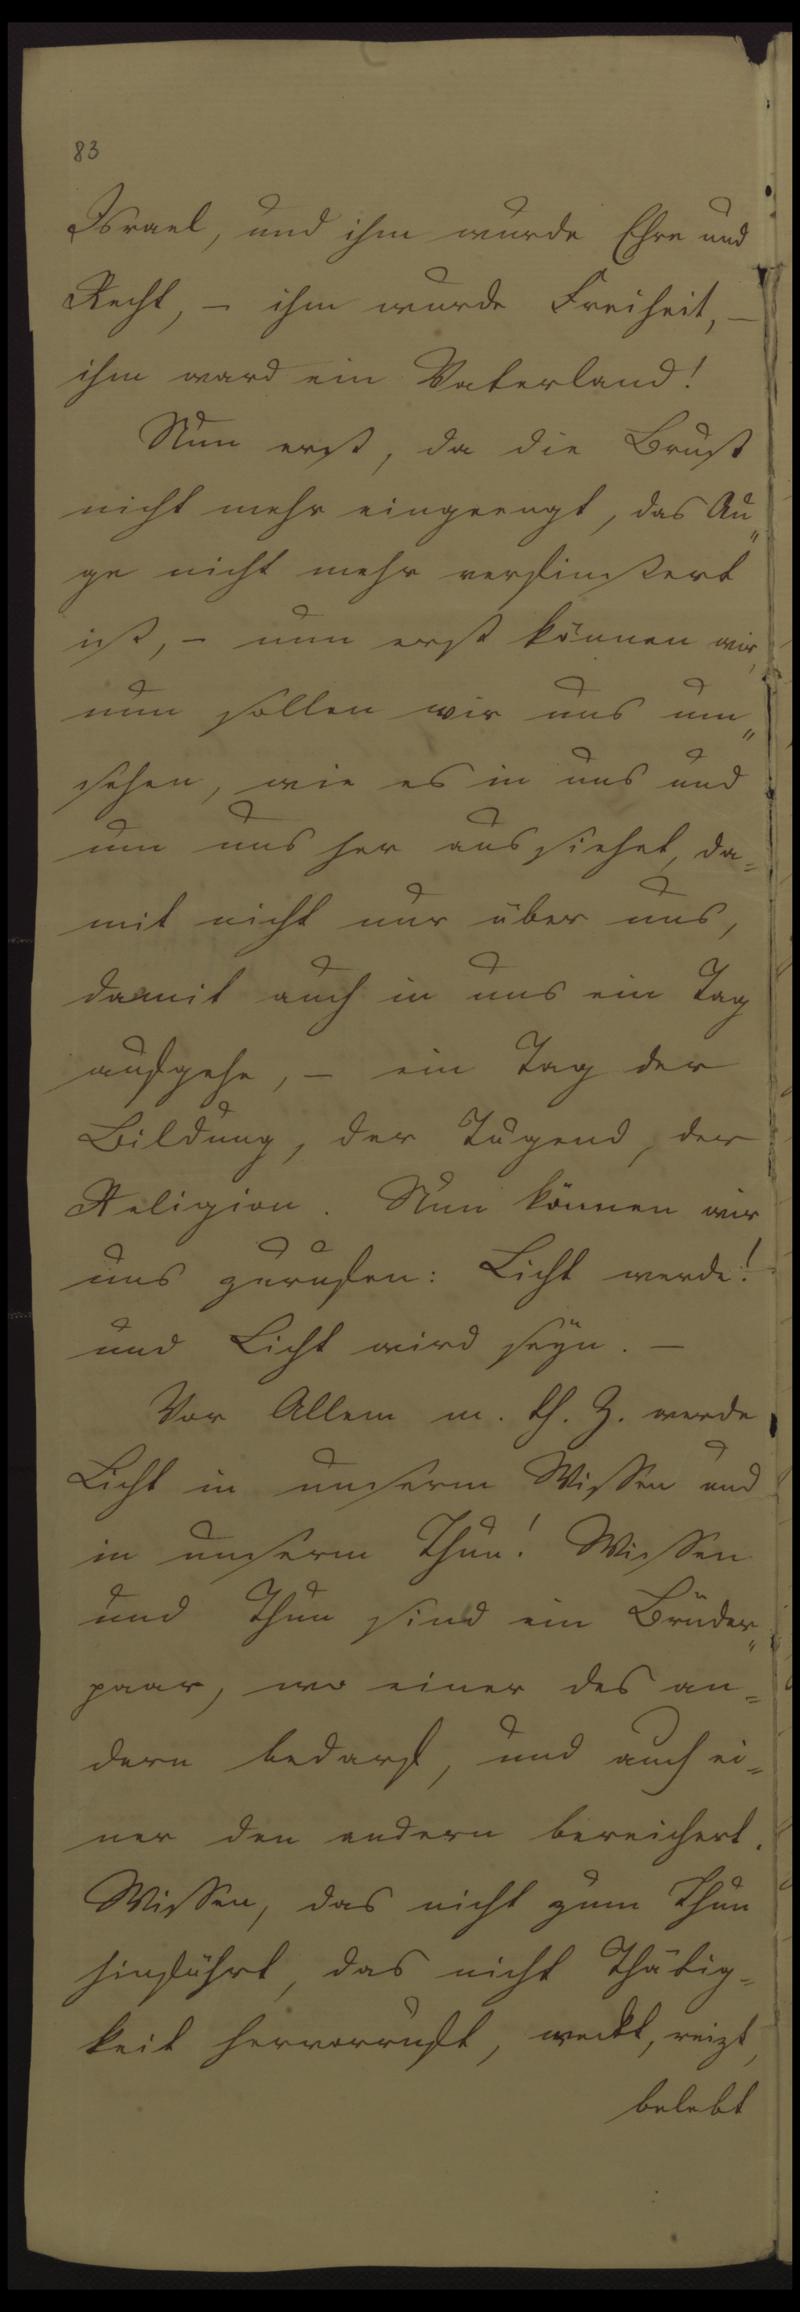 83
Israel, und ihm wurde Ehre und
Recht, – ihm wurde Freiheit, –
ihm ward ein Vaterland!
Nun erst, da die Brust
nicht mehr eingeengt, das Au„
ge nicht mehr verfinstert
ist, – nun erst können wir,
nun sollen wir uns um„
sehen, wie es in uns und
um uns her aussiehet, da=
mit nicht nur über uns,
damit auch in uns ein Tag
aufgehe, – ein Tag der
Bildung, der Tugend, der
Religion. Nun können wir
uns zurufen: Licht werde!
und Licht wird seÿn. –
Vor Allem m. th. Z. werde
Licht in unserm Wissen und
in unserm Thun! Wissen
und Thun sind ein Brüder„
paar, wo einer des an=
dern bedarf, und auch ei=
ner den andern bereichert.
Wissen, das nicht zum Thun
hinführt, das nicht Thätig=
keit hervorruft, weckt, reizt,
belebt